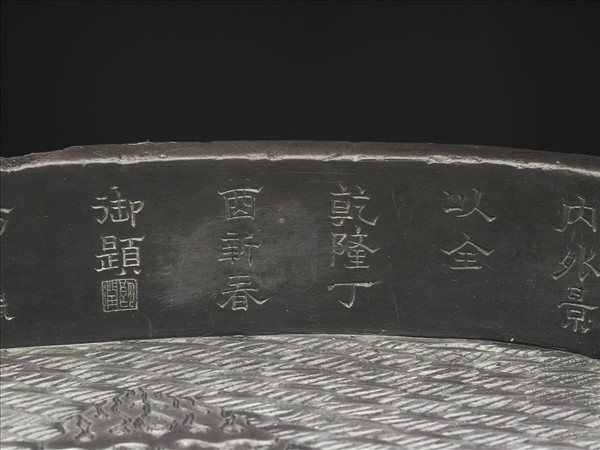 內外景
以全
乾隆丁
酉新春
御題